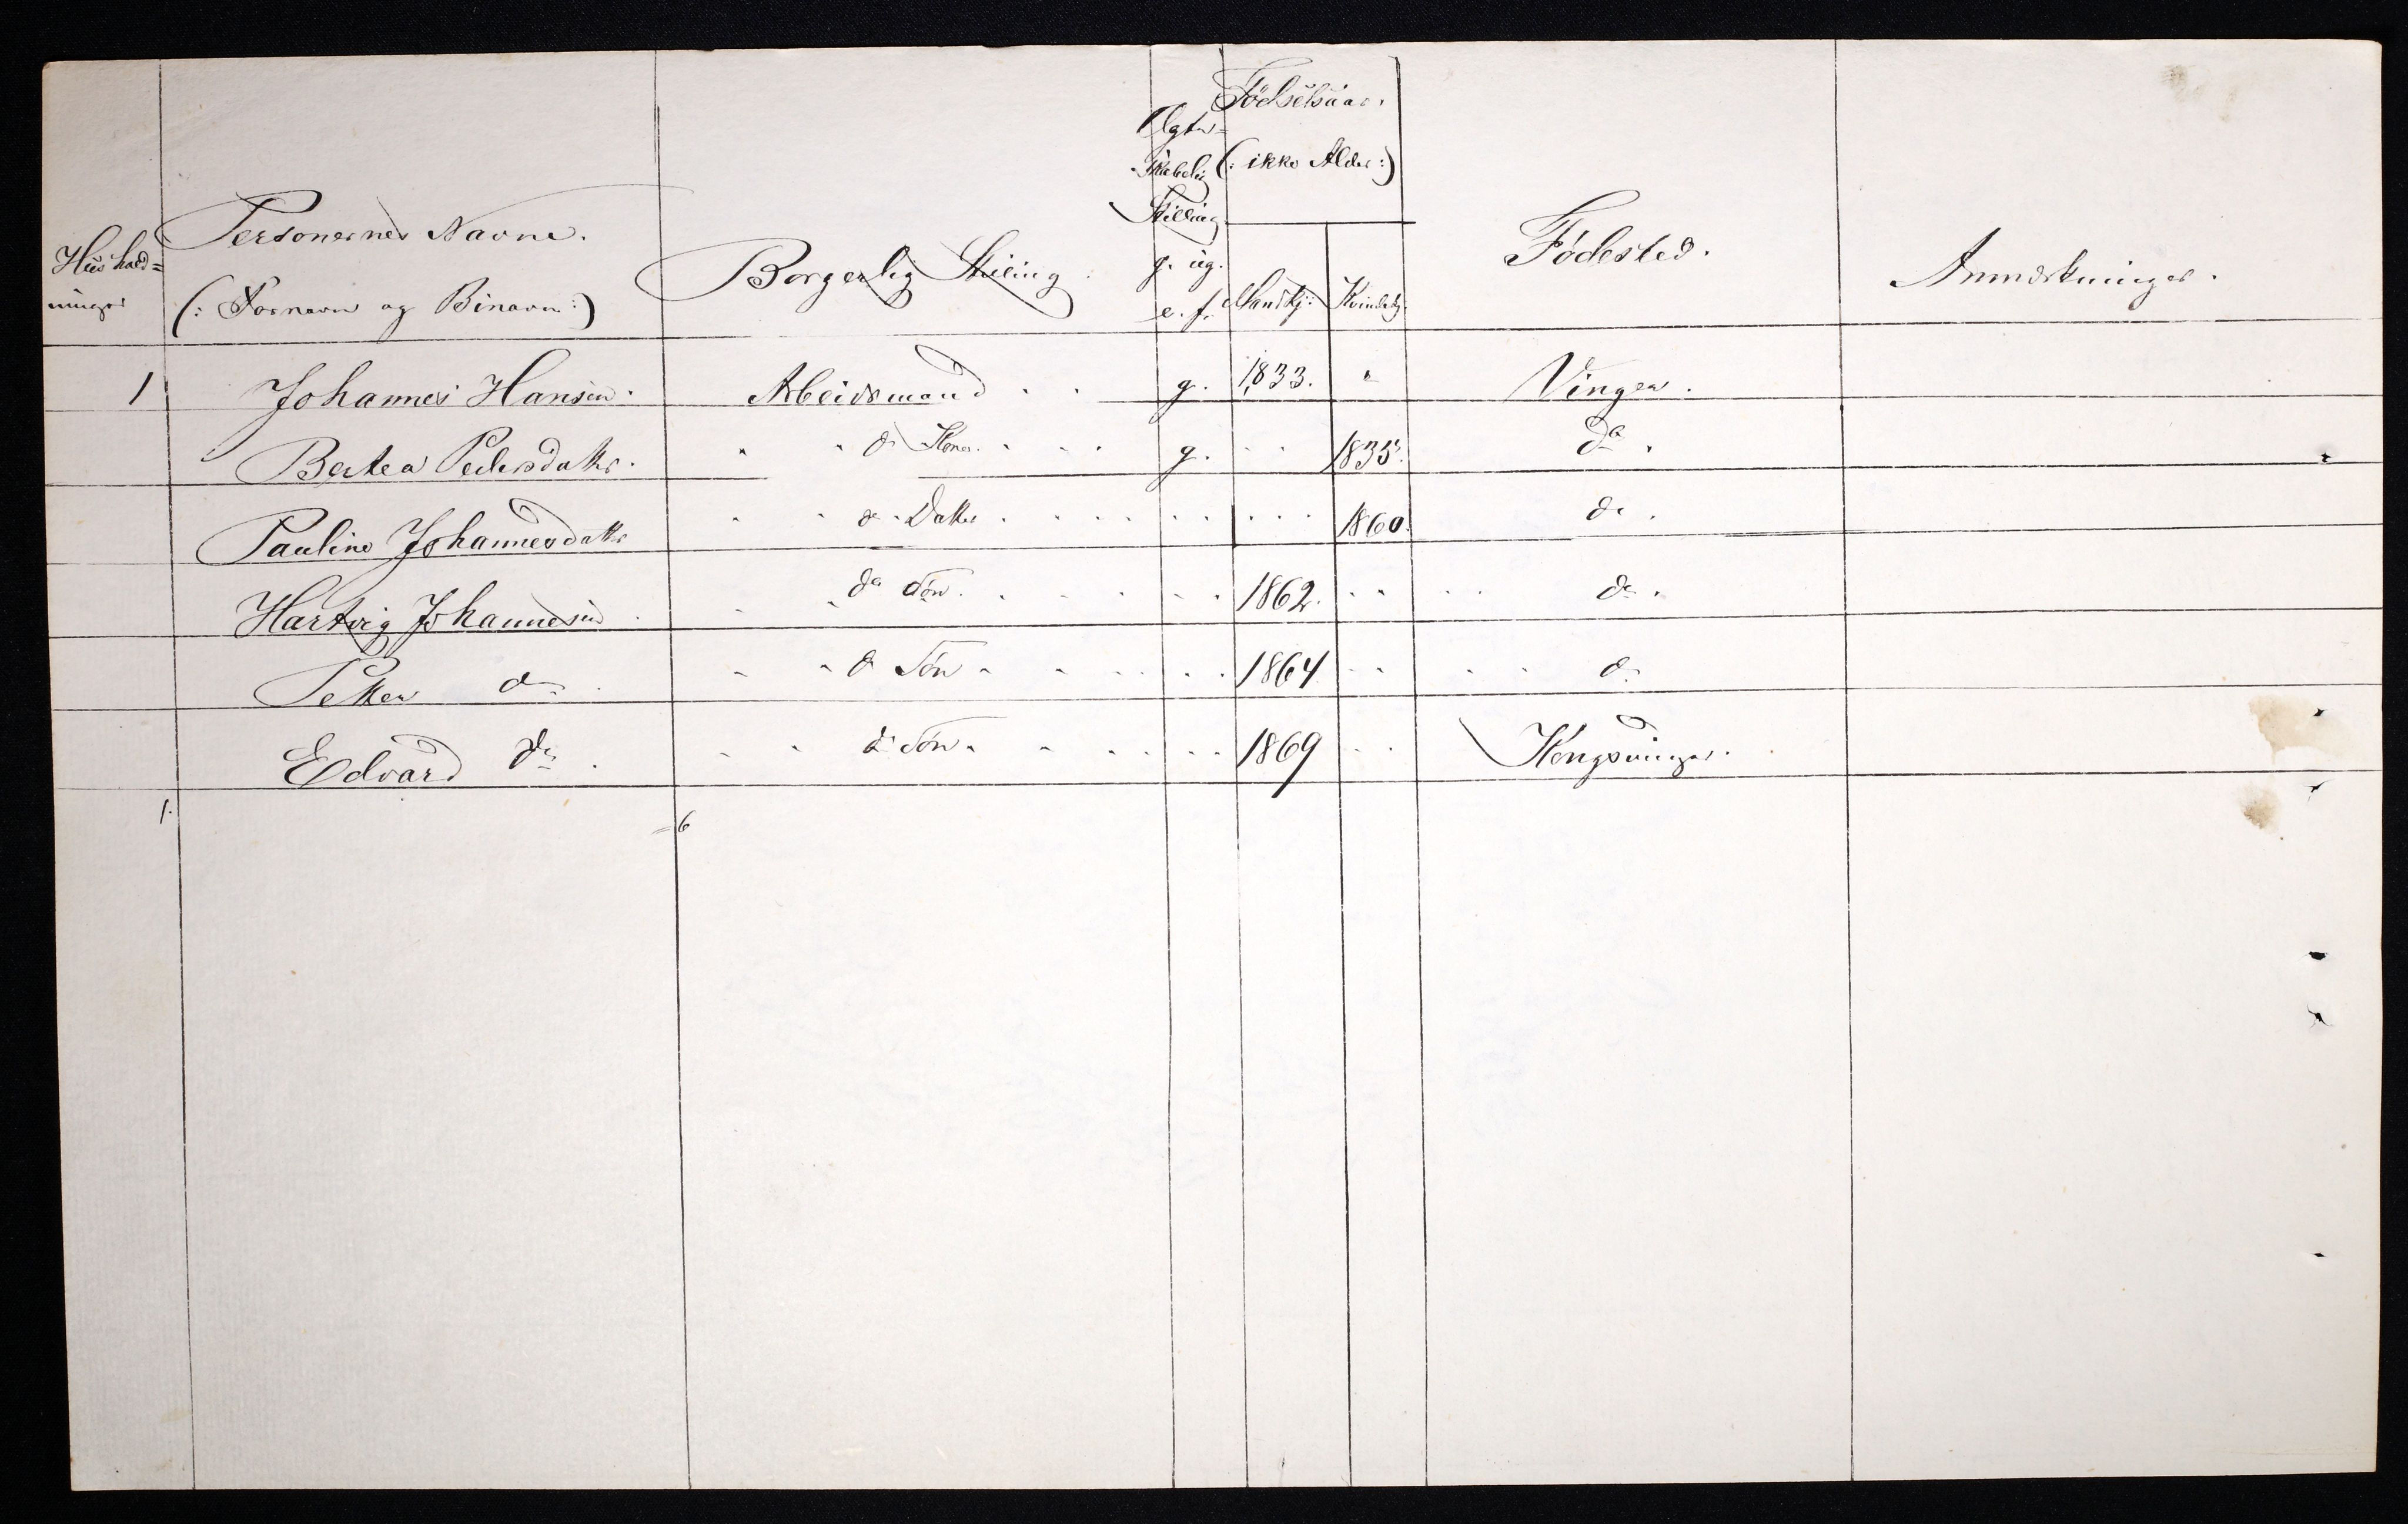 Huushold=
ninger
Personernes Navne.
(: Fornavn og Binavn :)
Borgerlig Stilling
Ægte=
skabelig
Stilling
g. ug.
e. f.
Födselsaar.
(: ikke Alder :)
Mandkj:
Kvindekj.
Födested.
Anmærkninger.
1 Johannes Hansen. Arbeidsmand . . g. 1833. " Vinger.
Bertea Pedersdatter. " " do Kone . . . . g. . . 1835. do .
Pauline Johannesdatter " " do Datter . . . . . . . . . 1860. do .
Hartvig Johannesen " " do Sön . . . . . . 1862. . . . . do .
Petter do " " do Sön . . . . . . 1864 . . . . do
Edvard do . " " do Sön . . . . . . 1869 . . Kongsvinger.
1. =6